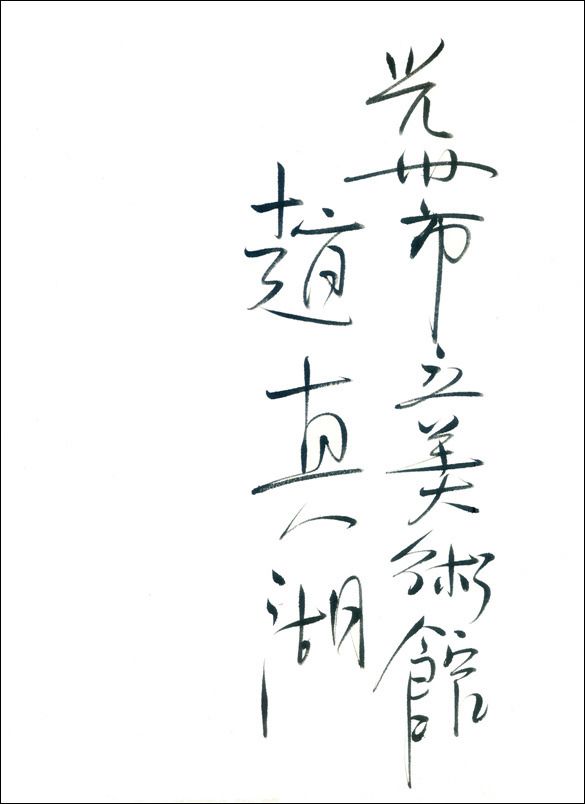 光州市立美術館
趙眞湖